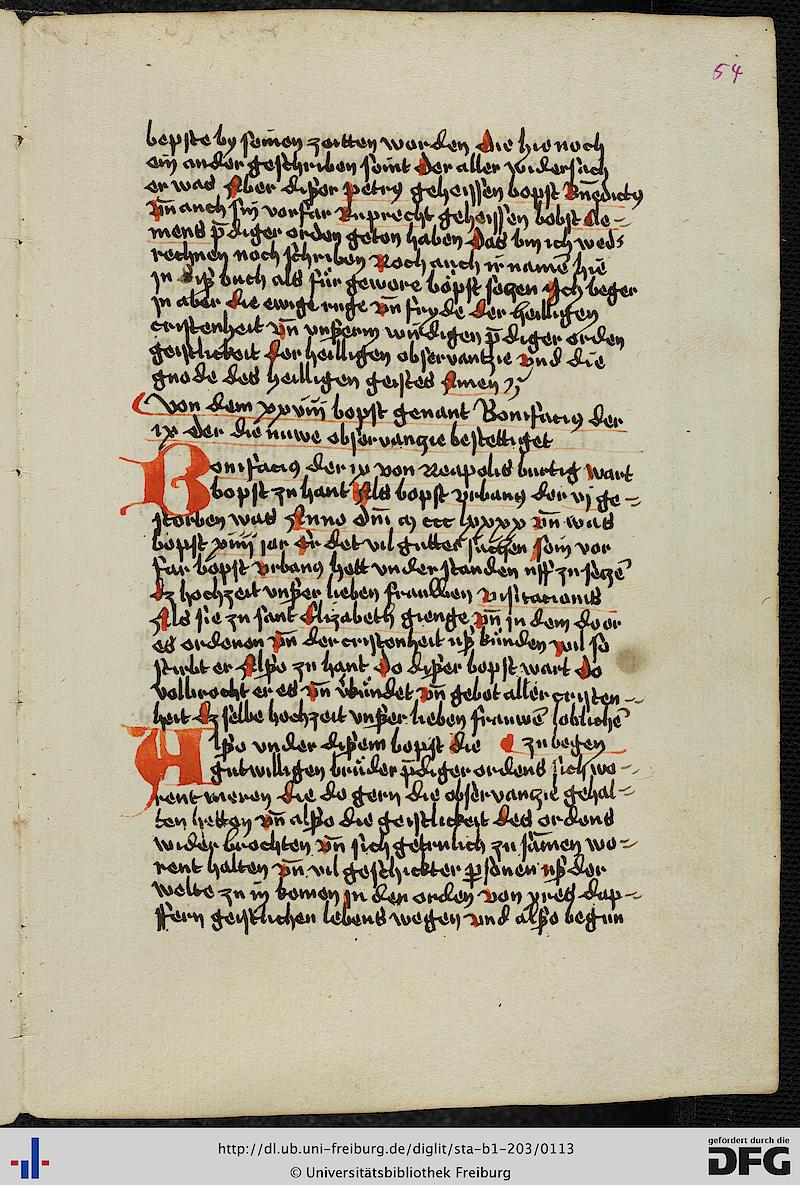 54
bepste by seinen zeitten worden Die hie noch
ein ander geschriben seint Der aller widersach
er was Aber diser petrus geheissen bopst Bn̄edictus
vn̄ auch sin vorfar Ruprecht geheissen bobst Cle-
mens p̄diger orden geton haben Das bin ich wed's
rechnen noch schriben Noch auch ir namē hie
in diß buch als für gewore böpst setzen Ich beger
in aber die ewige ruge vn̄ fryde der heilligen
cristenheit vn̄ vnßerm wirdigen p̄diger orden
geistlickeit der heilligen observantzie vnd die
gnode des heilligen geistes Amen
Von dem xxviij bopst genant Bonifacius der
ix der die nuwe observanzie bestettiget
Bonifacius der ix von Neapolis burtig wart
bopst zu hant Als bopst vrbanus der vj ge-
storben was Anno dn̄i M cccc lxxxx vn̄ was
bopst xiiij jar Er det vil gutter sachen sein vor
far bopst vrbanus hett vnderstanden uff zu setzē
dz hochzeit vnßer lieben frauwen visitacionis
Als sie zu sant Elizabeth gienge vn̄ in dem do er
es ordenen vn̄ der cristenheit uß künden wil so
stirbt er Alßo zu hant Do dißer bopst wart Do
volbrocht er es vn̄ v̈kündet vn̄ gebot aller cristen-
heit dz selbe hochzeit vnßer lieben frauwē loblichē
Alßo vnder dißem bopst die zu begen
gutwilligen brüder p̄diger ordens sich wo-
rent meren die do gern die observanzie gehal-
ten hetten vn̄ alßo die geistlickeit des ordens
wider brochten vn̄ sich getrulich zu sāmen wo-
rent halten vn̄ vil geschickter p̱sonen uß der
welte zu in komen in den orden von yres dap-
ffern geistlichen lebens wegen vnd alßo begun
http://dl.ub.uni-freiburg.de/diglit/sta-b1-203/0113
© Universitätsbibliothek Freiburg
gefördert durch die
DFG